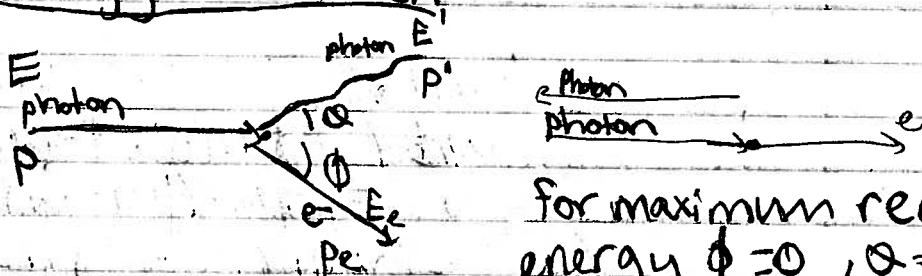 E'
photon
E
photon
P'
θ
P
ϕ
e-
Ee
Pe
Photon
photon
e
for maximum re
energy ϕ = 0 , θ =